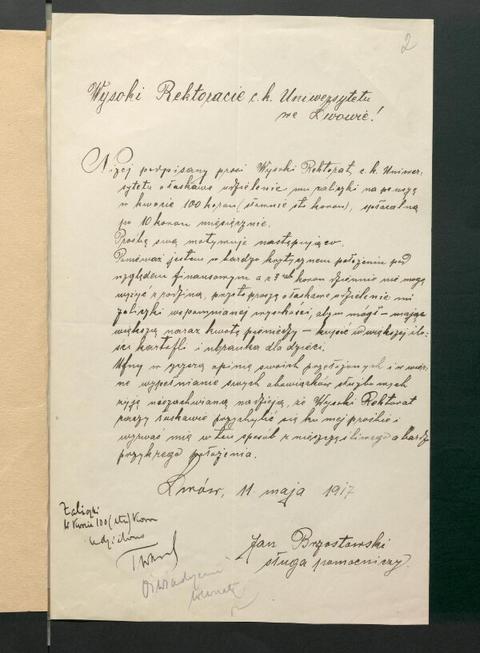 2
Wysoki Rektoracie c.k. Uniwersytetu
we Lwowie!
Niżej podpisany prosi Wysoki Rektorat c.k. Uniwer-
sytetu o łaskawe udzielenie mu zaliczki na pensyę
w kwocie 100 koron, (słownie sto koron), spłacalną
po 10 koron miesięcznie.
Prośbę swą motywuje następująco.
Ponieważ jestem w bardzo krytycznem położeniu pod
względem finansowym a z 3 koron dziennie nie mogę
wyżyć z rodziną, przeto proszę o łaskawe udzielenie mi
zaliczki wspomnianej wysokości, abym mógł – mając
większą naraz kwotę pieniędzy – kupić większej ilo-
ści kartofli i ubranka dla dzieci.
Ufny w opinię swoich przełożonych i w
wypełnianie swych obowiązków służbowych
żyję niezachwianą nadzieją, że Wysoki Rektorat
raczy łaskawie przychylić się ku mej prośbie i
wyrwać mię w ten sposób z nieszczęśliwego a bardzo
przykrego położenia.
Lwów, 11. maja 1917
Zaliczki
w kwocie 100 (stu) Koron
udzielono
Jan Brzostowski
sługa pomocniczy.